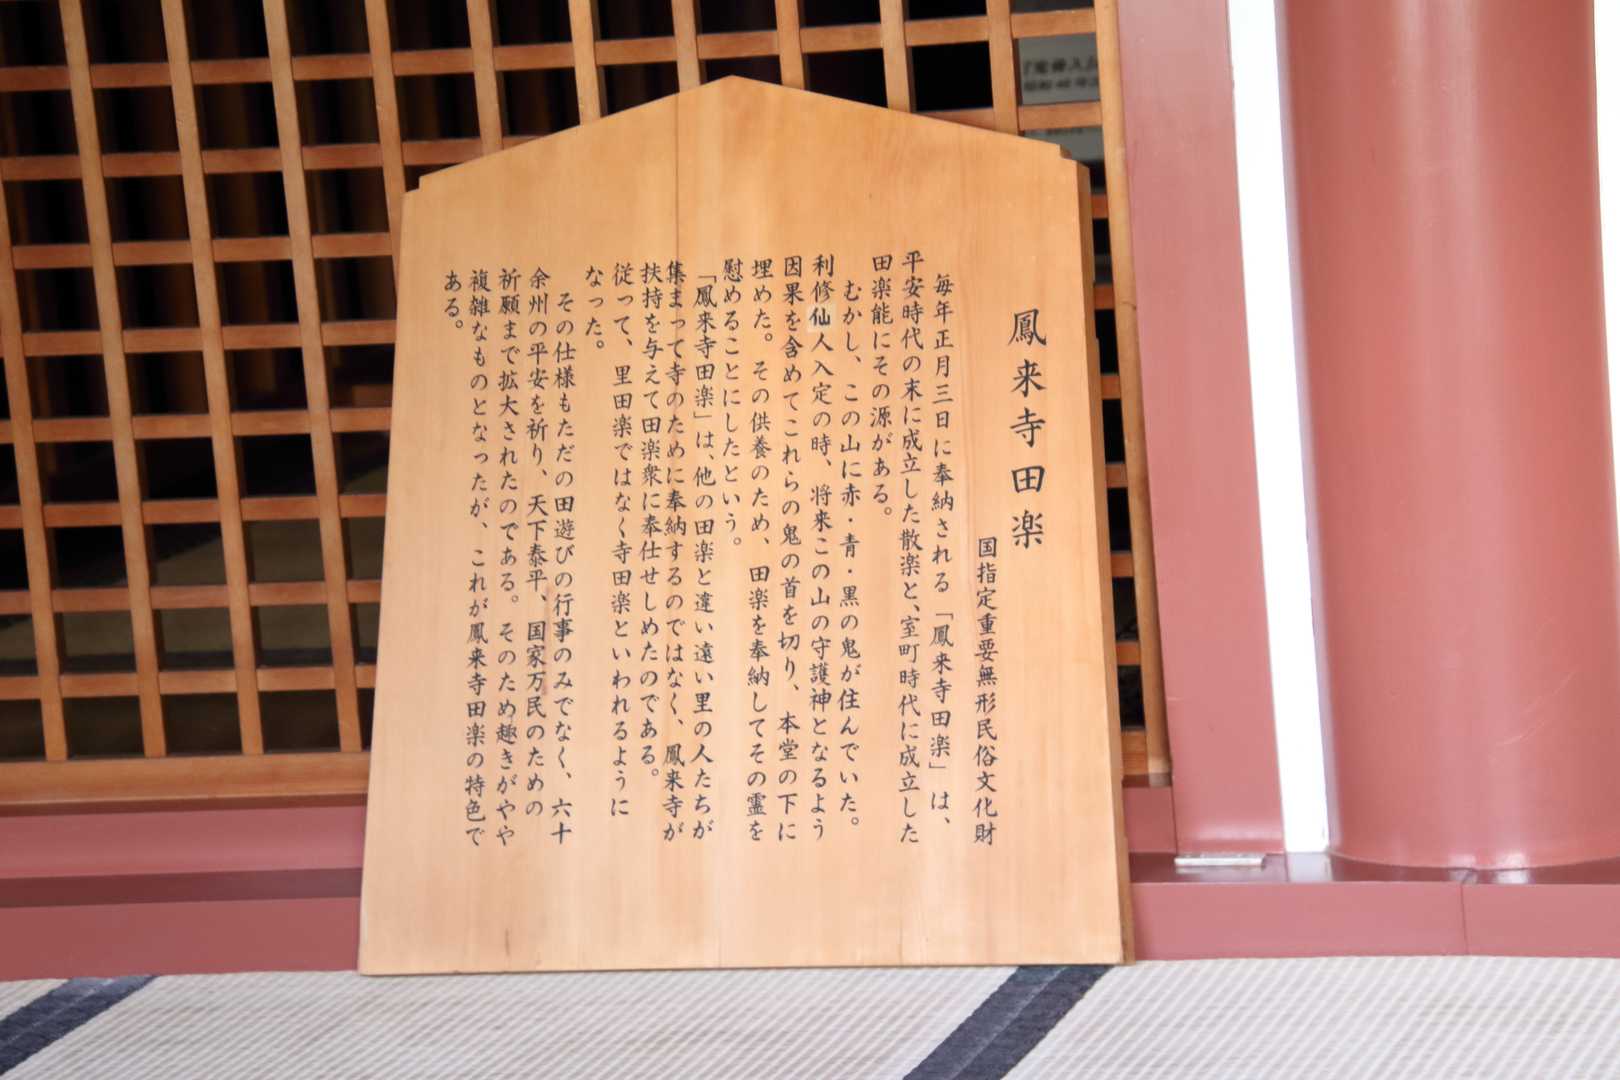 鳳来寺田楽
国指定重要無形民俗文化財
毎年正月三日に奉納される「鳳来寺田楽」は、
平安時代の末に成立した散楽と、室町時代に成立した
田楽能にその源がある。
むかし、この山に赤・青・黒の鬼が住んでいた。
利修仙人入定の時、将来この山の守護神となるよう
因果を含めてこれらの鬼の首を切り、本堂の下に
埋めた。その供養のため、田楽を奉納してその霊を
慰めることにしたという。
「鳳来寺田楽」は、他の田楽と違い遠い里の人たちが
集まって寺のために奉納するのではなく、鳳来寺が
扶持を与えて田楽衆に奉仕せしめたのである。
従って、里田楽ではなく寺田楽といわれるように
なった。
その仕様もただの田遊びの行事のみでなく、六十
余州の平安を祈り、天下泰平、国家万民のための
祈願まで拡大されたのである。そのため趣きがやや
複雑なものとなったが、これが鳳来寺田楽の特色で
ある。